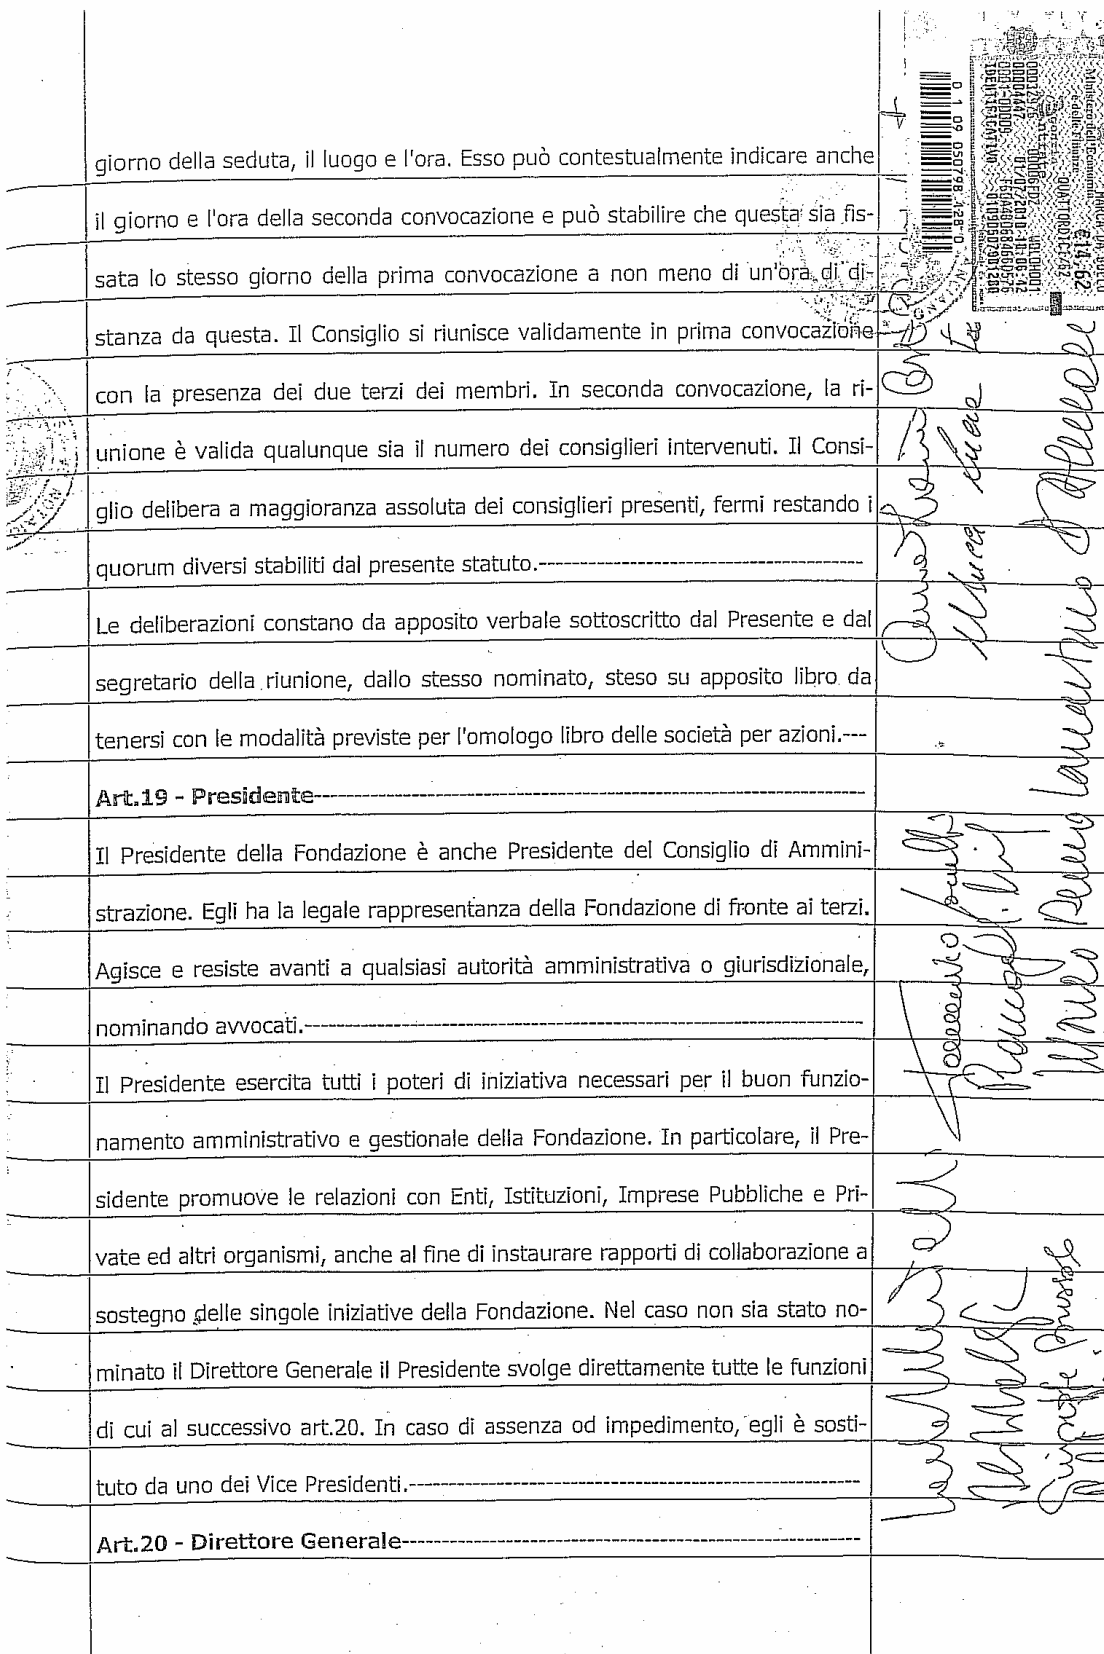 giorno della seduta, il luogo e l'ora. Esso può contestualmente indicare anche
il giorno e l'ora della seconda convocazione e può stabilire che questa sia fis-
sata lo stesso giorno della prima convocazione a non meno di un'ora di di-
stanza da questa. Il Consiglio si riunisce validamente in prima convocazione
con la presenza dei due terzi dei membri. In seconda convocazione, la ri-
unione è valida qualunque sia il numero dei consiglieri intervenuti. Il Consi-
glio delibera a maggioranza assoluta dei consiglieri presenti, fermi restando i
quorum diversi stabiliti dal presente statuto.----------------------------------------------
Le deliberazioni constano da apposito verbale sottoscritto dal Presente e dal
segretario della riunione, dallo stesso nominato, steso su apposito libro da
tenersi con le modalità previste per l'omologo libro delle società per azioni.---
Art.19 - Presidente------------------------------------------------------------------------------
Il Presidente della Fondazione è anche Presidente del Consiglio di Ammini-
strazione. Egli ha la legale rappresentanza della Fondazione di fronte ai terzi.
Agisce e resiste avanti a qualsiasi autorità amministrativa o giurisdizionale,
nominando avvocati.--------------------------------------------------------------------------------
Il Presidente esercita tutti i poteri di iniziativa necessari per il buon funzio-
namento amministrativo e gestionale della Fondazione. In particolare, il Pre-
sidente promuove le relazioni con Enti, Istituzioni, Imprese Pubbliche e Pri-
vate ed altri organismi, anche al fine di instaurare rapporti di collaborazione a
sostegno delle singole iniziative della Fondazione. Nel caso non sia stato no-
minato il Direttore Generale il Presidente svolge direttamente tutte le funzioni
di cui al successivo art.20. In caso di assenza od impedimento, egli è sosti-
tuto da uno dei Vice Presidenti.----------------------------------------------------------------
Art.20 - Direttore Generale-----------------------------------------------------------------
MARCA DA BOLLO
€14,62
QUATTORDICI/62
01/07/2010
0 1 09 050798 128 0
NOTAIO